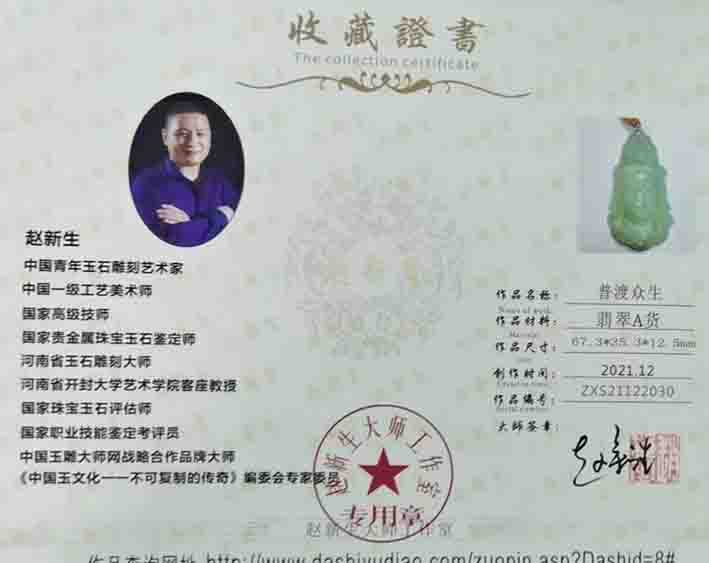 收藏證書
The collection certificate
赵新生
中国青年玉石雕刻艺术家
中国一级工艺美术师
国家高级技师
国家贵金属珠宝玉石鉴定师
河南省玉石雕刻大师
河南省开封大学艺术学院客座教授
国家珠宝玉石评估师
国家职业技能鉴定考评员
中国玉雕大师网战略合作品牌大师
《中国玉文化——不可复制的传奇》编委会专家委员
作品名称: 普渡众生
Name of work
作品材料: 翡翠A货
Material
作品尺寸: 67.3*35.3*12.5mm
创作时间: 2021.12
作品编号: ZXS21122030
大师签章:
赵新生大师工作室
专用章
赵新生大师工作室
作品查询网址 http://www.dashiyudiao.com/zuopin.asp?Dashid=8#